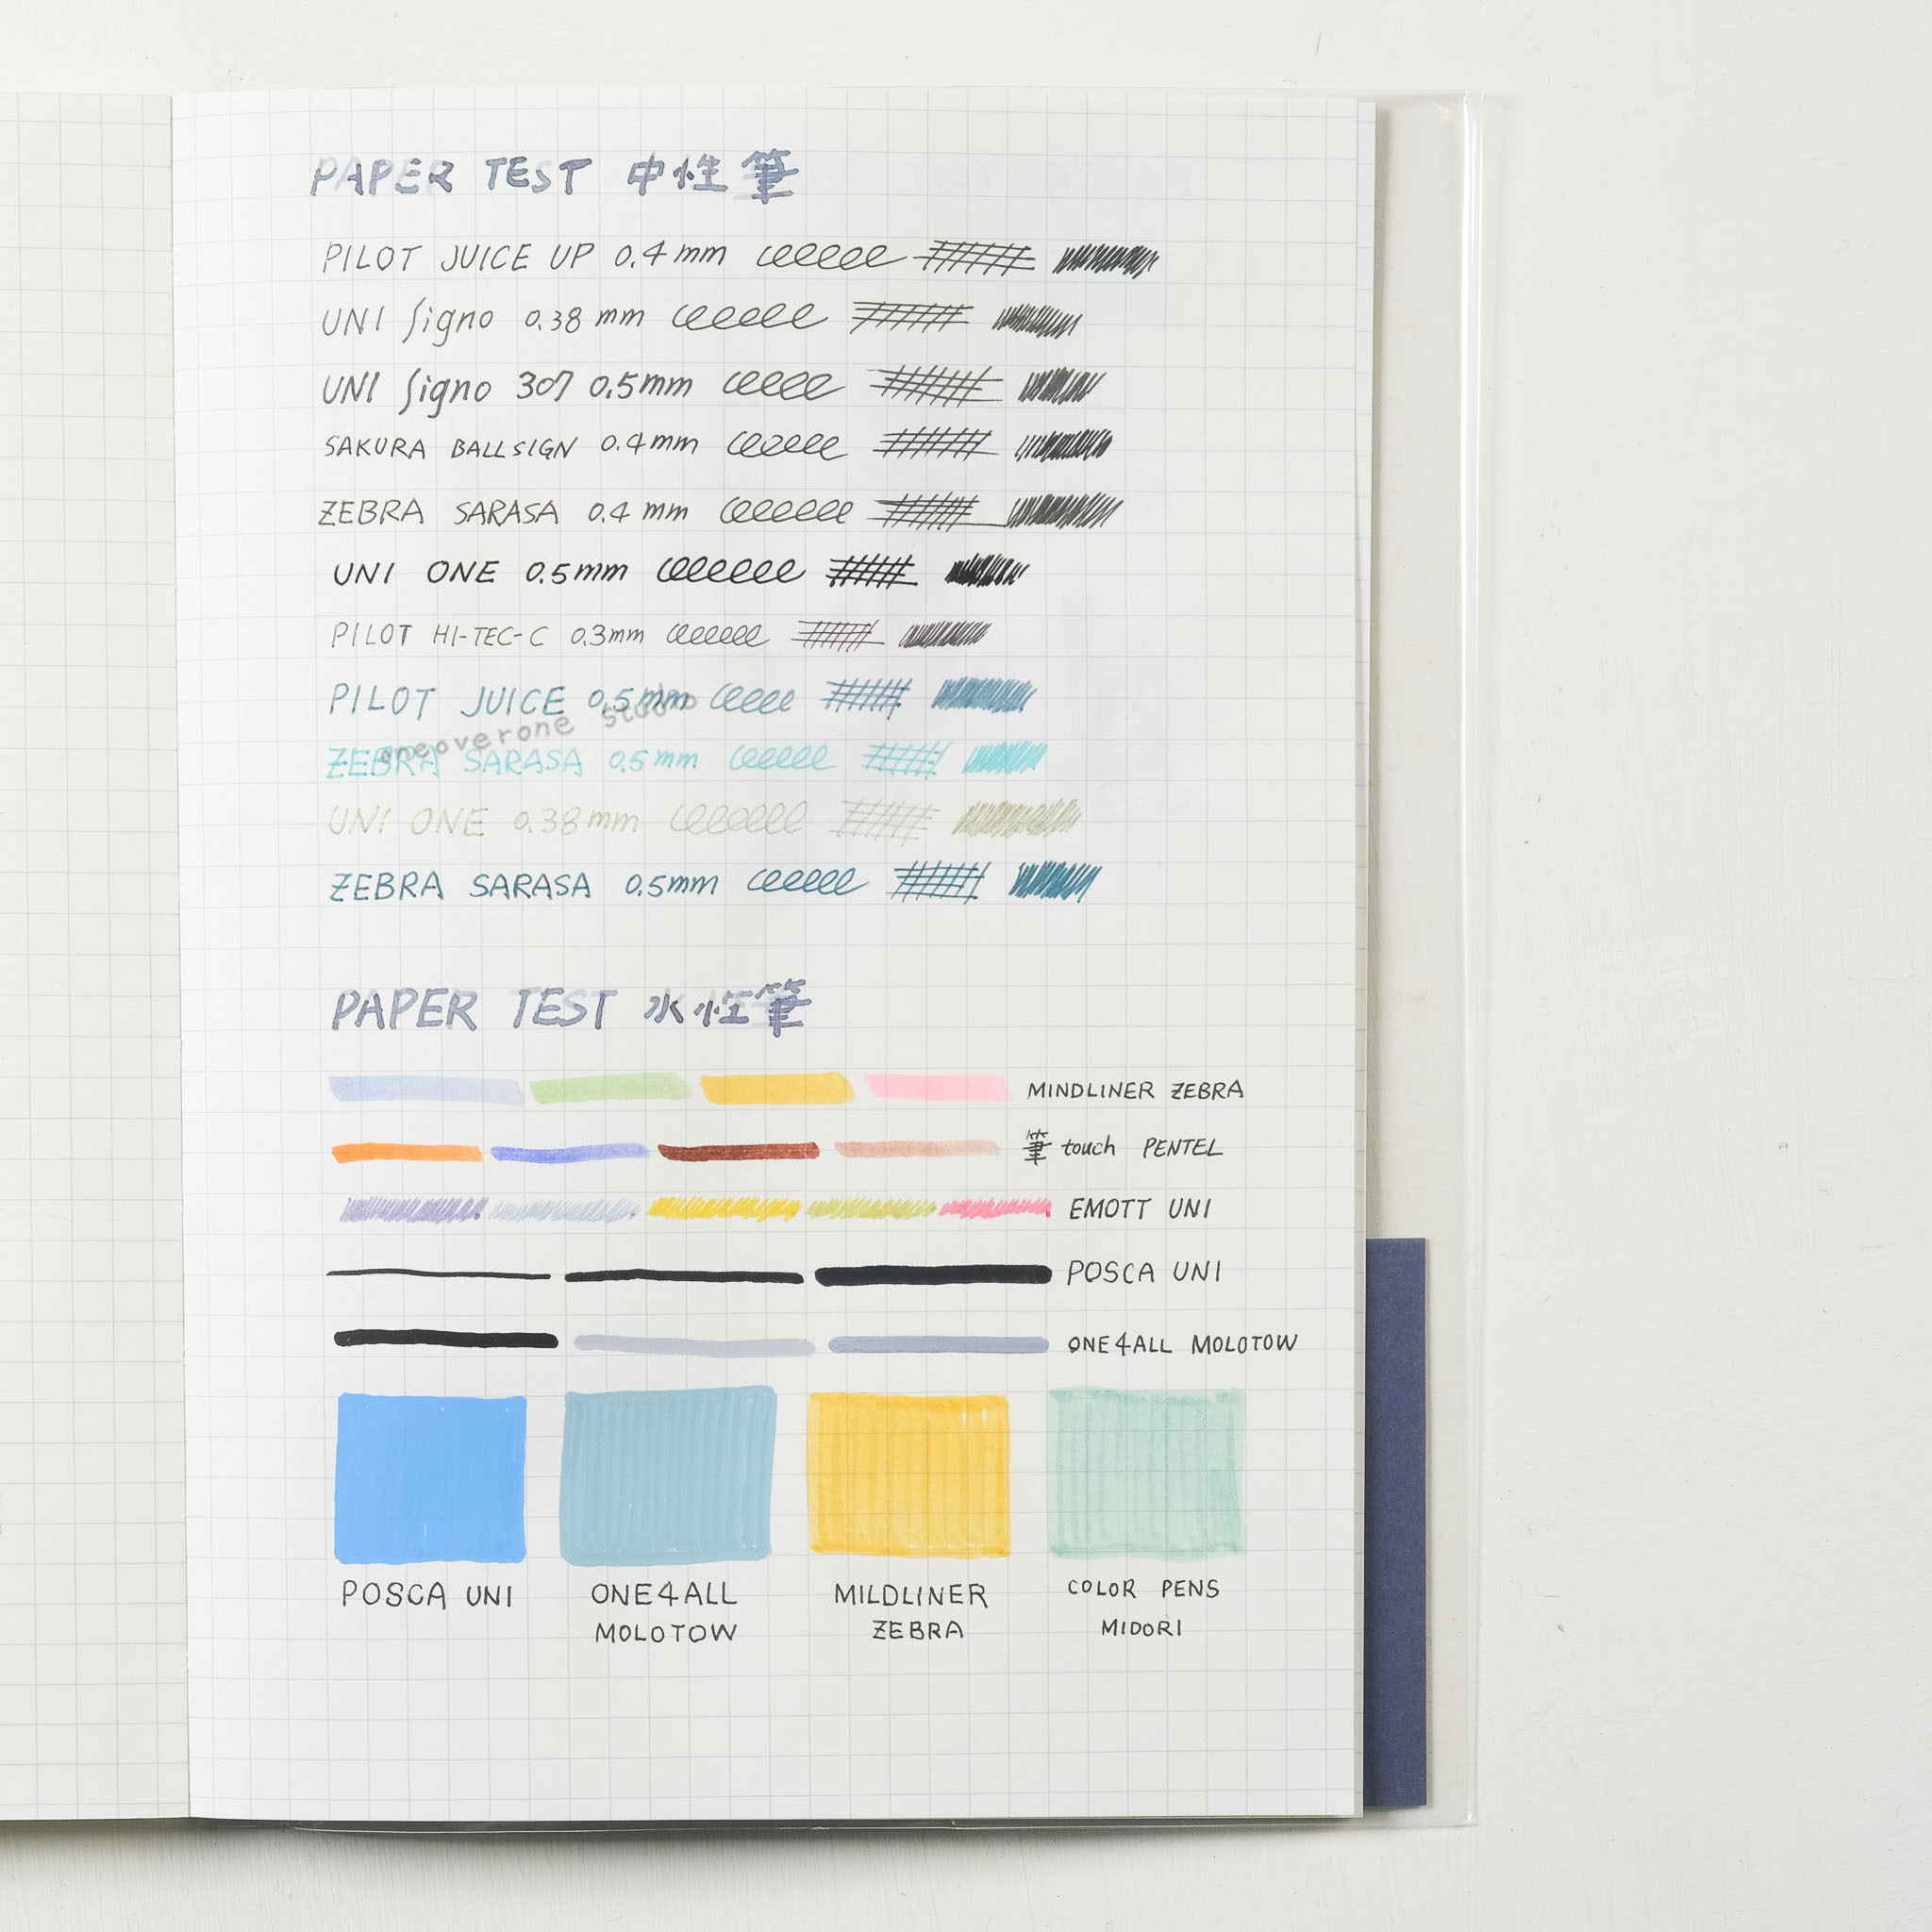 PAPER TEST 中性筆
PILOT JUICE UP 0.4mm
UNI Signo 0.38 mm
UNI Signo 307 0.5mm
SAKURA BALLSIGN 0.4mm
ZEBRA SARASA 0.4 mm
UNI ONE 0.5mm
PILOT HI-TEC-C 0.3mm
PILOT JUICE 0.5mm
oneoverone studio
ZEBRA SARASA 0.5mm
UNI ONE 0.38mm
ZEBRA SARASA 0.5mm
PAPER TEST 水性筆
MINDLINER ZEBRA
筆 touch PENTEL
EMOTT UNI
POSCA UNI
ONE4ALL MOLOTOW
POSCA UNI
ONE4ALL
MOLOTOW
MILDLINER
ZEBRA
COLOR PENS
MIDORI